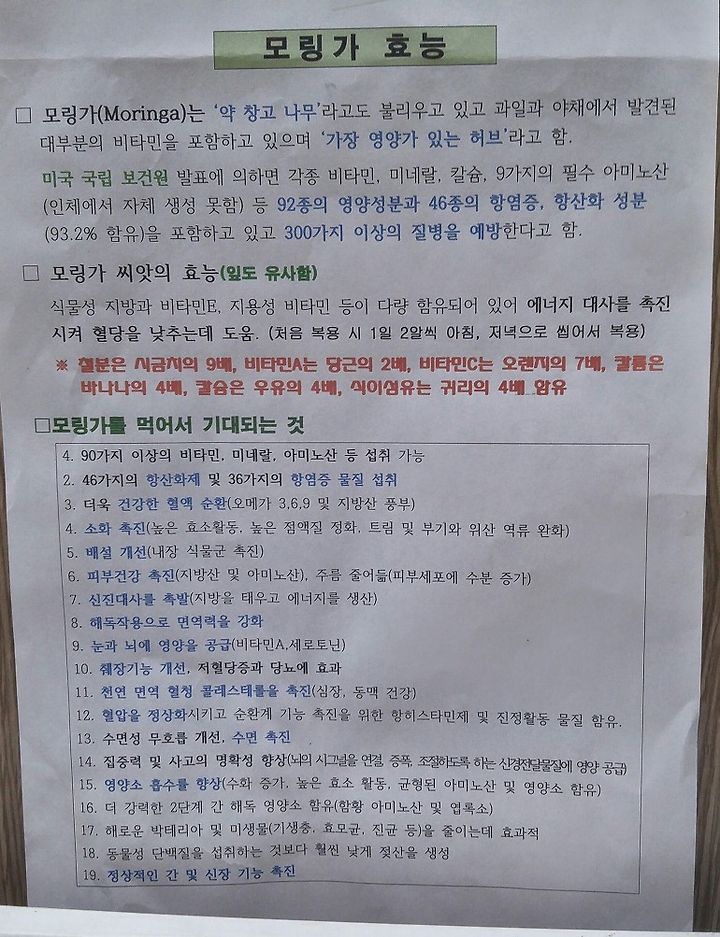 모링가 효능
□ 모링가(Moringa)는 '약 창고 나무'라고도 불리우고 있고 과일과 야채에서 발견된
대부분의 비타민을 포함하고 있으며 '가장 영양가 있는 허브'라고 함.
미국 국립 보건원 발표에 의하면 각종 비타민, 미네랄, 칼슘, 9가지의 필수 아미노산
(인체에서 자체 생성 못함) 등 92종의 영양성분과 46종의 항염증, 항산화 성분
(93.2% 함유)을 포함하고 있고 300가지 이상의 질병을 예방한다고 함.
□ 모링가 씨앗의 효능(잎도 유사함)
식물성 지방과 비타민E, 지용성 비타민 등이 다량 함유되어 있어 에너지 대사를 촉진
시켜 혈당을 낮추는데 도움. (처음 복용 시 1일 2알씩 아침, 저녁으로 씹어서 복용)
※ 철분은 시금치의 9배, 비타민A는 당근의 2배, 비타민C는 오렌지의 7배, 칼륨은
바나나의 4배, 칼슘은 우유의 4배, 식이섬유는 귀리의 4배 함유
□모링가를 먹어서 기대되는 것
4. 90가지 이상의 비타민, 미네랄, 아미노산 등 섭취 가능
2. 46가지의 항산화제 및 36가지의 항염증 물질 섭취
3. 더욱 건강한 혈액 순환(오메가 3,6,9 및 지방산 풍부)
4. 소화 촉진(높은 효소활동, 높은 점액질 정화, 트림 및 부기와 위산 역류 완화)
5. 배설 개선(내장 식물군 촉진)
6. 피부건강 촉진(지방산 및 아미노산), 주름 줄어듦(피부세포에 수분 증가)
7. 신진대사를 촉발(지방을 태우고 에너지를 생산)
8. 해독작용으로 면역력을 강화
9. 눈과 뇌에 영양을 공급(비타민A,세로토닌)
10. 췌장기능 개선, 저혈당증과 당뇨에 효과
11. 천연 면역 혈청 콜레스테롤을 촉진(심장, 동맥 건강)
12. 혈압을 정상화시키고 순환계 기능 촉진을 위한 항히스타민제 및 진정활동 물질 함유.
13. 수면성 무호흡 개선, 수면 촉진
14. 집중력 및 사고의 명확성 향상(뇌의 시그널을 연결, 증폭, 조절하도록 하는 신경전달물질에 영양 공급)
15. 영양소 흡수률 향상(수화 증가, 높은 효소 활동, 균형된 아미노산 및 영양소 함유)
16. 더 강력한 2단계 간 해독 영양소 함유(함황 아미노산 및 엽록소)
17. 해로운 박테리아 및 미생물(기생충, 효모균, 진균 등)을 줄이는데 효과적
18. 동물성 단백질을 섭취하는 것보다 훨씬 낮게 젖산을 생성
19. 정상적인 간 및 신장 기능 촉진